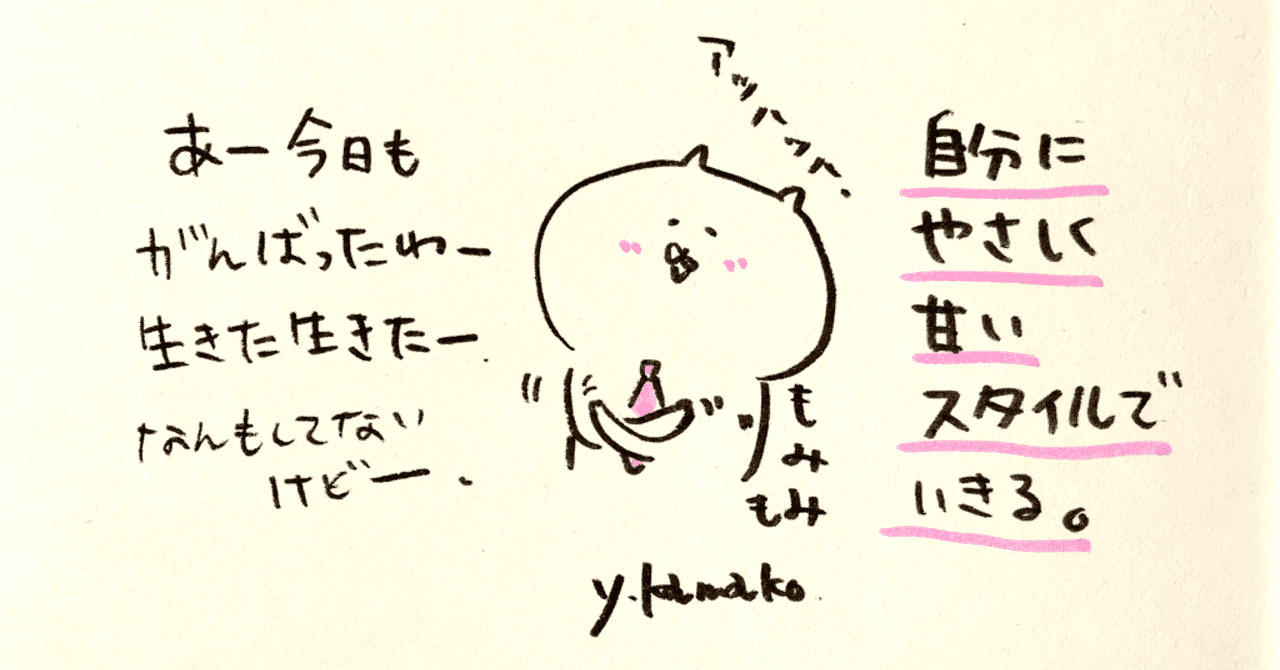 あー今日も
がんばったわー
生きた生きたー
なんもしてない
けどー.
アッハッハ.
もみ
もみ
自分に
やさしく
甘い
スタイルで
いきる。
y.tamako